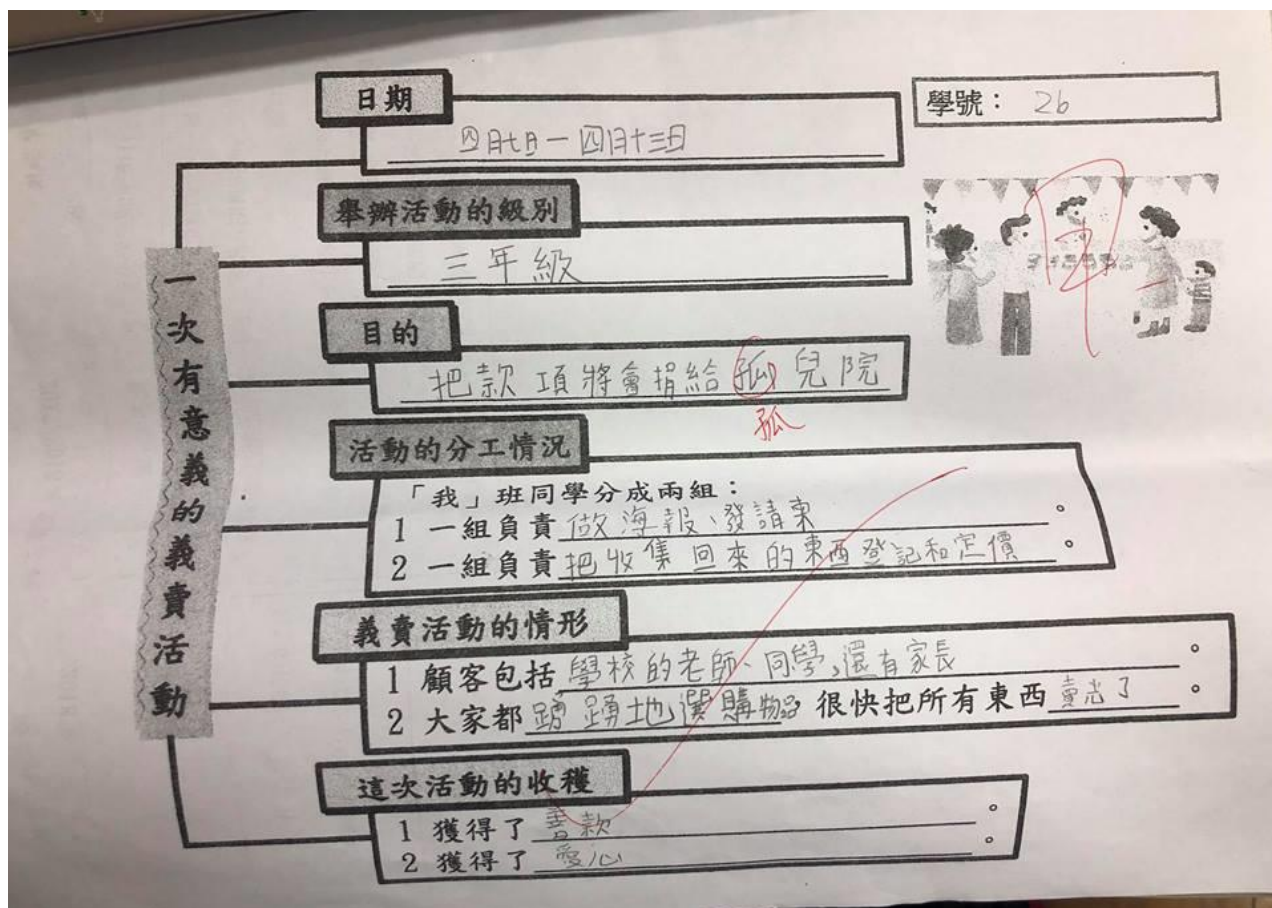 日期
學號： 26
四月七日－四月十三日
舉辦活動的級別
三年級
一次有意義的義賣活動
目的
把款項將會捐給孤兒院
孤
活動的分工情況
「我」班同學分成兩組：
1 一組負責做海報、發請柬。
2 一組負責把收集回來的東西登記和定價。
義賣活動的情形
1 顧客包括學校的老師、同學，還有家長。
2 大家都踴踴地選購物品 很快把所有東西賣光了。
這次活動的收穫
1 獲得了善款。
2 獲得了愛心。